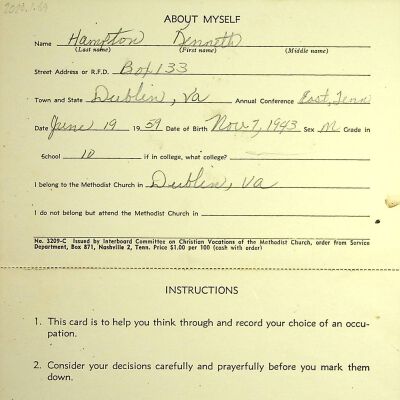 2020.1.69
ABOUT MYSELF
Name Hampton Kenneth
(Last name) (First name) (Middle name)
Street Address or R.F.D. Box 133
Town and State Dublin, Va Annual Conference East, Tenn
Date June 19 1959 Date of Birth Nov 7, 1943 Sex M Grade in
School 10 if in college, what college?
I belong to the Methodist Church in Dublin, Va
I do not belong but attend the Methodist Church in
No. 3209-C Issued by Interboard Committee on Christian Vocations of the Methodist Church, order from Service
Department, Box 871, Nashville 2, Tenn. Price $1.00 per 100 (cash with order)
INSTRUCTIONS
1. This card is to help you think through and record your choice of an occu-
pation.
2. Consider your decisions carefully and prayerfully before you mark them
down.